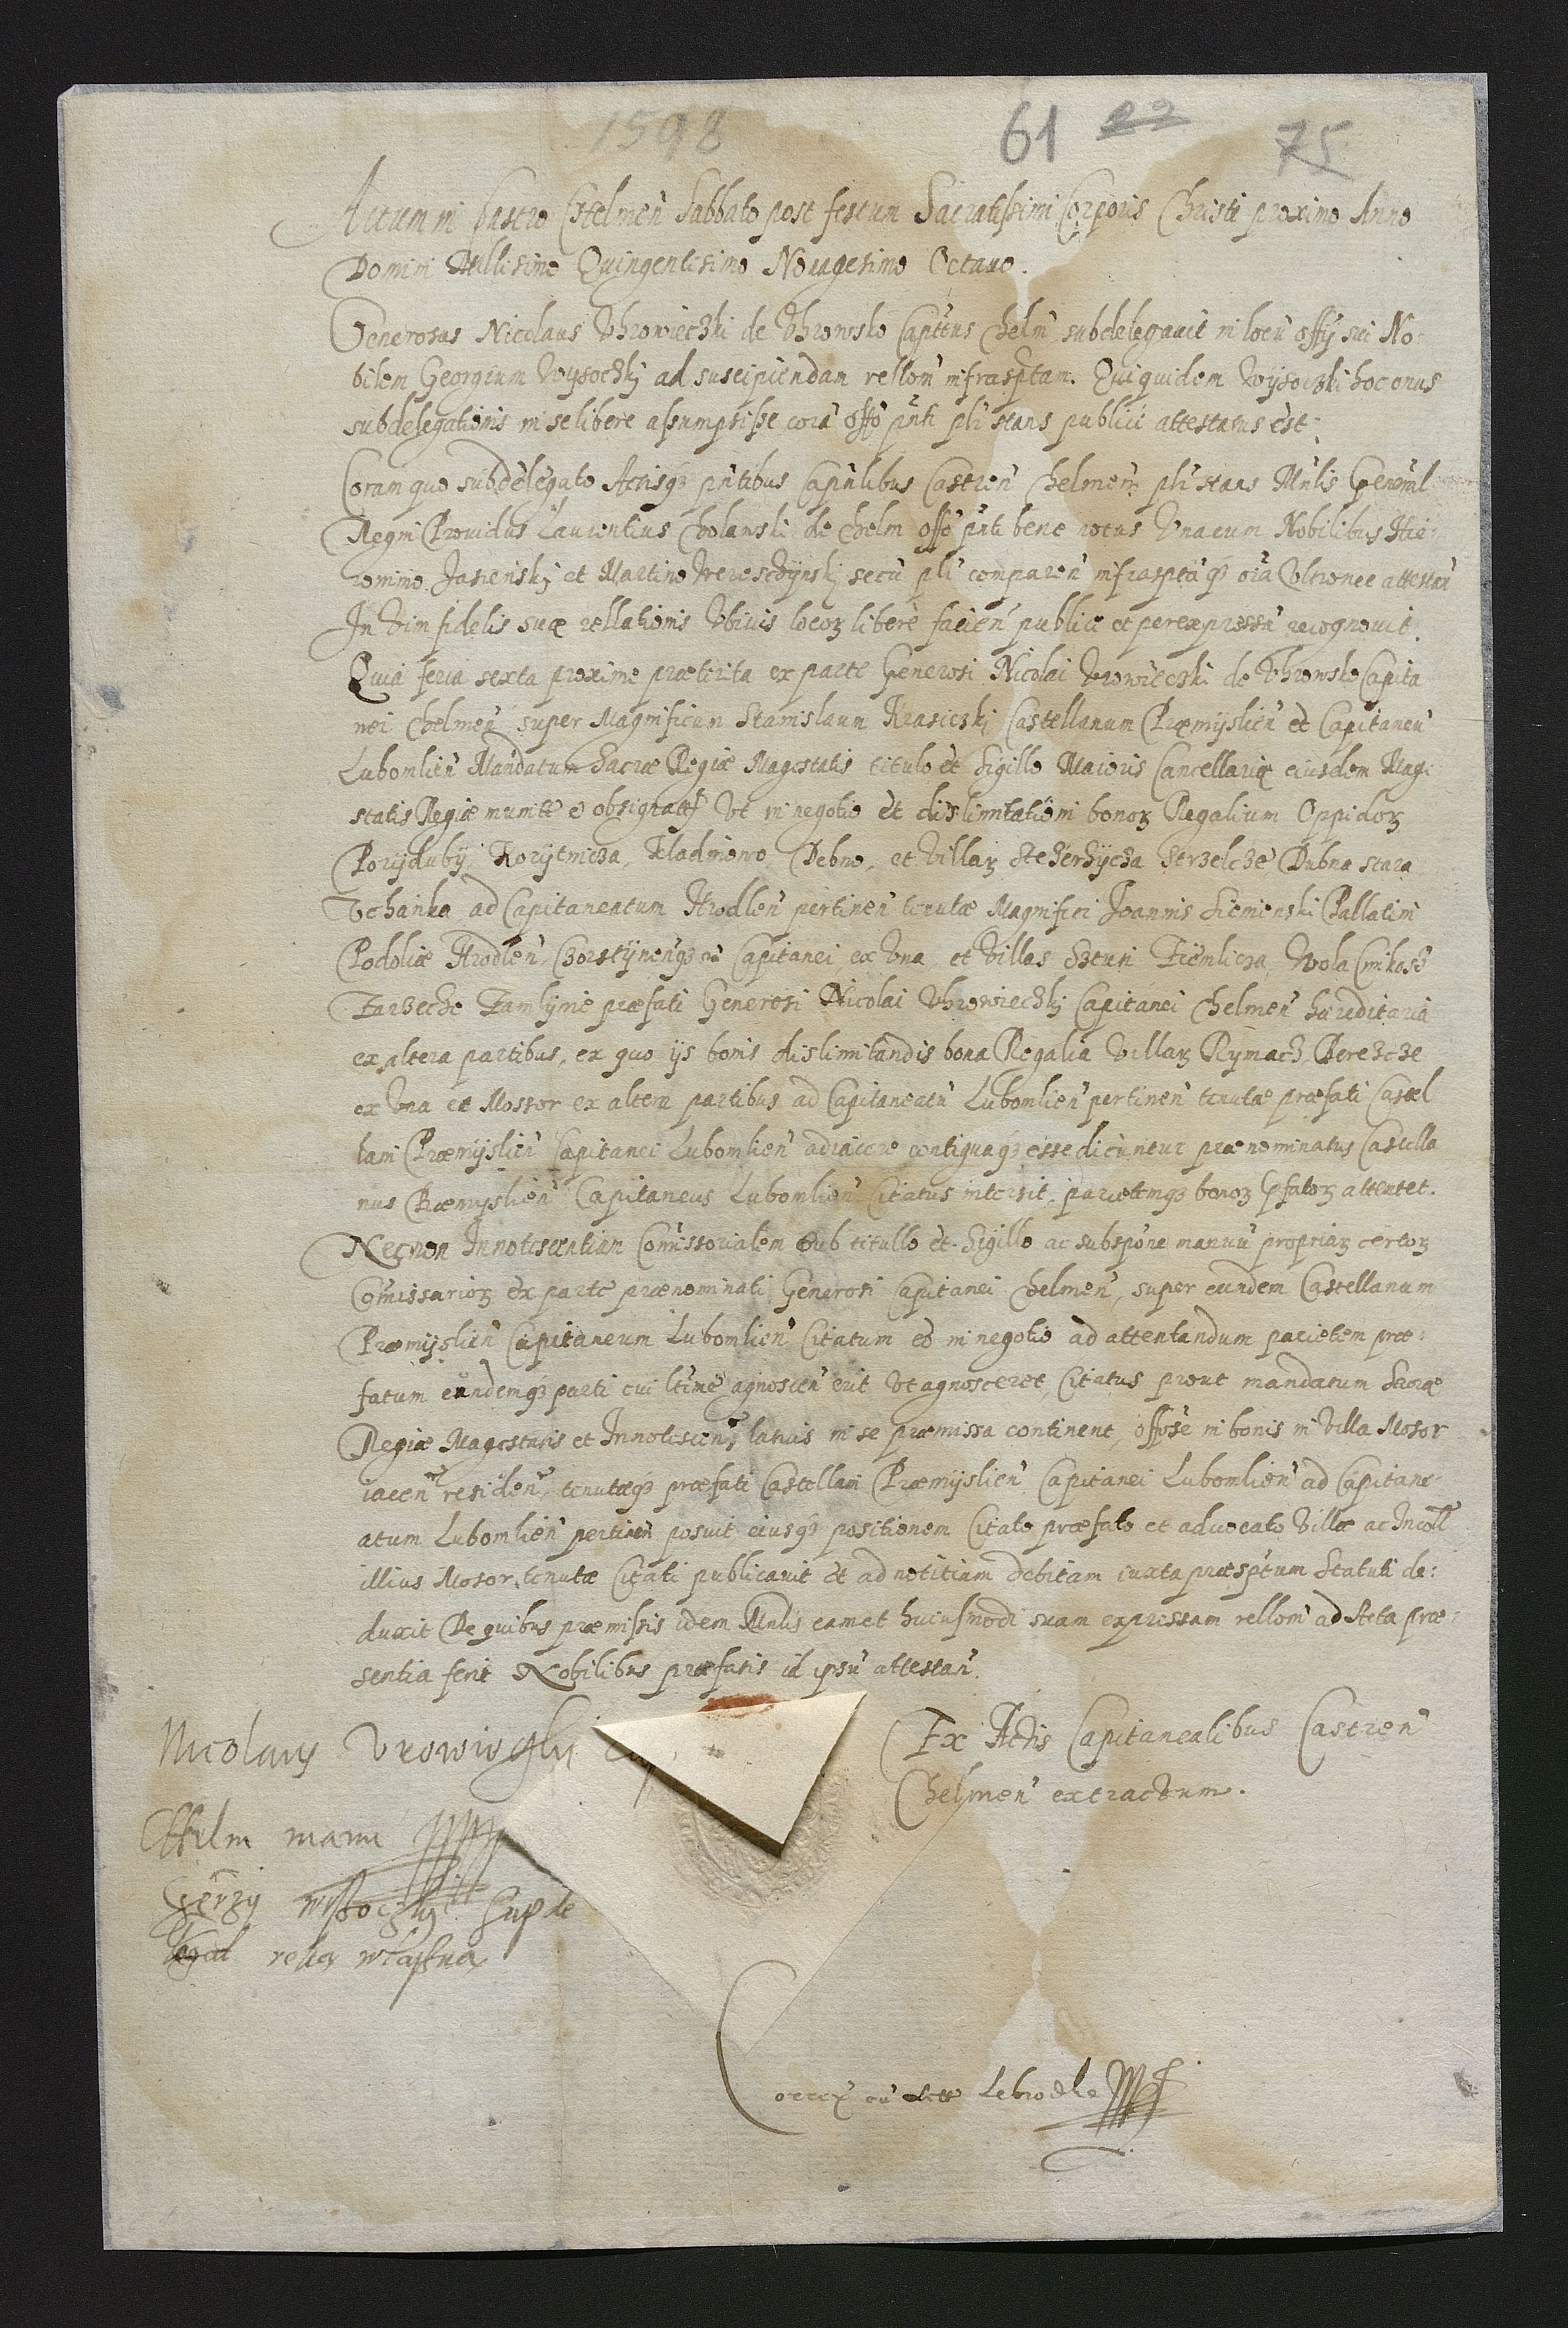 1598 61 22 75
Actum in Castro Chelmeñ Sabbato post festum Sacratissimi Corporis Christi proximo Anno
Domini Millesimo Quingentesimo Nonagesimo Octauo.
Generosus Nicolaus Vhrowieczki de Vhrowsko Capttus Chelm̃ subdelegauit in locũ offÿ sui No-
bilem Georgium Wysoczkj ad suscipiendam rellom̃ infrasptam. Qui quidem Wysoczki hoc onus
subdelegationis in se libere assumpsisse corã offo pñti plr̃ stans publicẽ attestatus est.
Coram quo subdelegato Actisqꝫ pñtibus Capñlibus Castreñ Chelmeñ plr̃ stans Mñlis Gener̃al
Regni Prouidus Laurentius Cholawski de Chelm offo pñti bene notus Vnacum Nobilibus Hie-
ronimo Jasienskj et Martino Wereszczÿnskj secũ plr̃ compareñ infrasptãqꝫ oĩa Vltronee attestañ
In Vim fidelis suæ rellationis Vbiuis locoꝝ libere facieñ publicẽ et per expressũ recognouit.
Quia feria sexta proxime præterita ex parte Generosi Nicolai Vrowieczki de Vhrowsko Capita
nei Chelmeñ super Magnificum Stanislaum Krasiczkj Castellanum Præmÿslieñ et Capitaneũ
Lubomlieñ Mandatum Sacræ Regiæ Magestatis titulo et Sigillo Maioris Cancellariæ eiusdem Mage
statis Regiæ munitt et obsignatt Vt in negotio et dislimitationi bonoꝝ Regalium Oppidoꝝ
Poryduby, Korÿtnicza, Kladniowo, Debno, et Villaꝝ Stezerzÿcza Strzelcze Dubna stara
Vchanka ad Capitaneatum Hrodleñ pertineñ tenutæ Magnifici Joannis Siemienski Pallatini
Podoliæ Hrodleñ Capitanei, ex Vna, et Villas Sztuñ Ziemlicza, Wola
præfati Generosi Nicolai Vhrowieczkj Capitanei Chelmeñ hæreditaria
ex altera partibus, ex quo ijs bonis dislimitandis bona Regalia Villaꝝ Rÿmacz Perezcze
ex Vna et Mossor ex altera partibus ad Capitaneatũ Lubomlieñ pertineñ tenutæ præfati Castel
lani Præmÿslieñ Capitanei Lubomlieñ adiacere contiguaqꝫ esse dicuntur prænominatus Castella
nus Præmyslieñ Capitaneus Lubomlieñ Citatus intersit, parietemqꝫ bonoꝝ pfatoꝝ attentet.
Necnon Innotescentiam Comissorialem Sub titullo et Sigillo ac subspone manuũ propriaꝝ certoꝝ
Comissarioꝝ ex parte prænominati Generosi Capitanei Chelmeñ, super eundem Castellanum
Præmÿslieñ Capitaneum Lubomlieñ Citatum eo in negotio ad attentandum parietem præ-
fatum eundemqꝫ parti cui ltime agnosceñ erit Vt agnosceret, Citatus prout mandatum Sacræ
Regiæ Magestatis et Innotesceñ latius in se præmissa continent, offose in bonis in Villa Mosor
iaceñ resideñ tenutæqꝫ præfati Castellani Præmÿslieñ Capitanei Lubomlieñ ad Capitane-
atum Lubomlieñ pertineñ posuit eiusqꝫ positionem Citato præfato et aduocato Villæ ac Incoll
illius Mosor tenutæ Citati publicauit et ad notitiam debitam iuxta præsptum Statuti de-
duxit De quibus præmissis idem Mnlis eamet huiusmodi suam expressam rellom̃ ad Acta præ-
sentia fecit Nobilibus præfatis id ipsũ attestañ.
Nicolaus Vrowieczkij Cap
Chelm manu
Gerzy Wysoczkij Supde
legat reka wlasna
Ex Actis Capitanealibus Castreñ
Chelmeñ extractum.
Correx cũ Actt